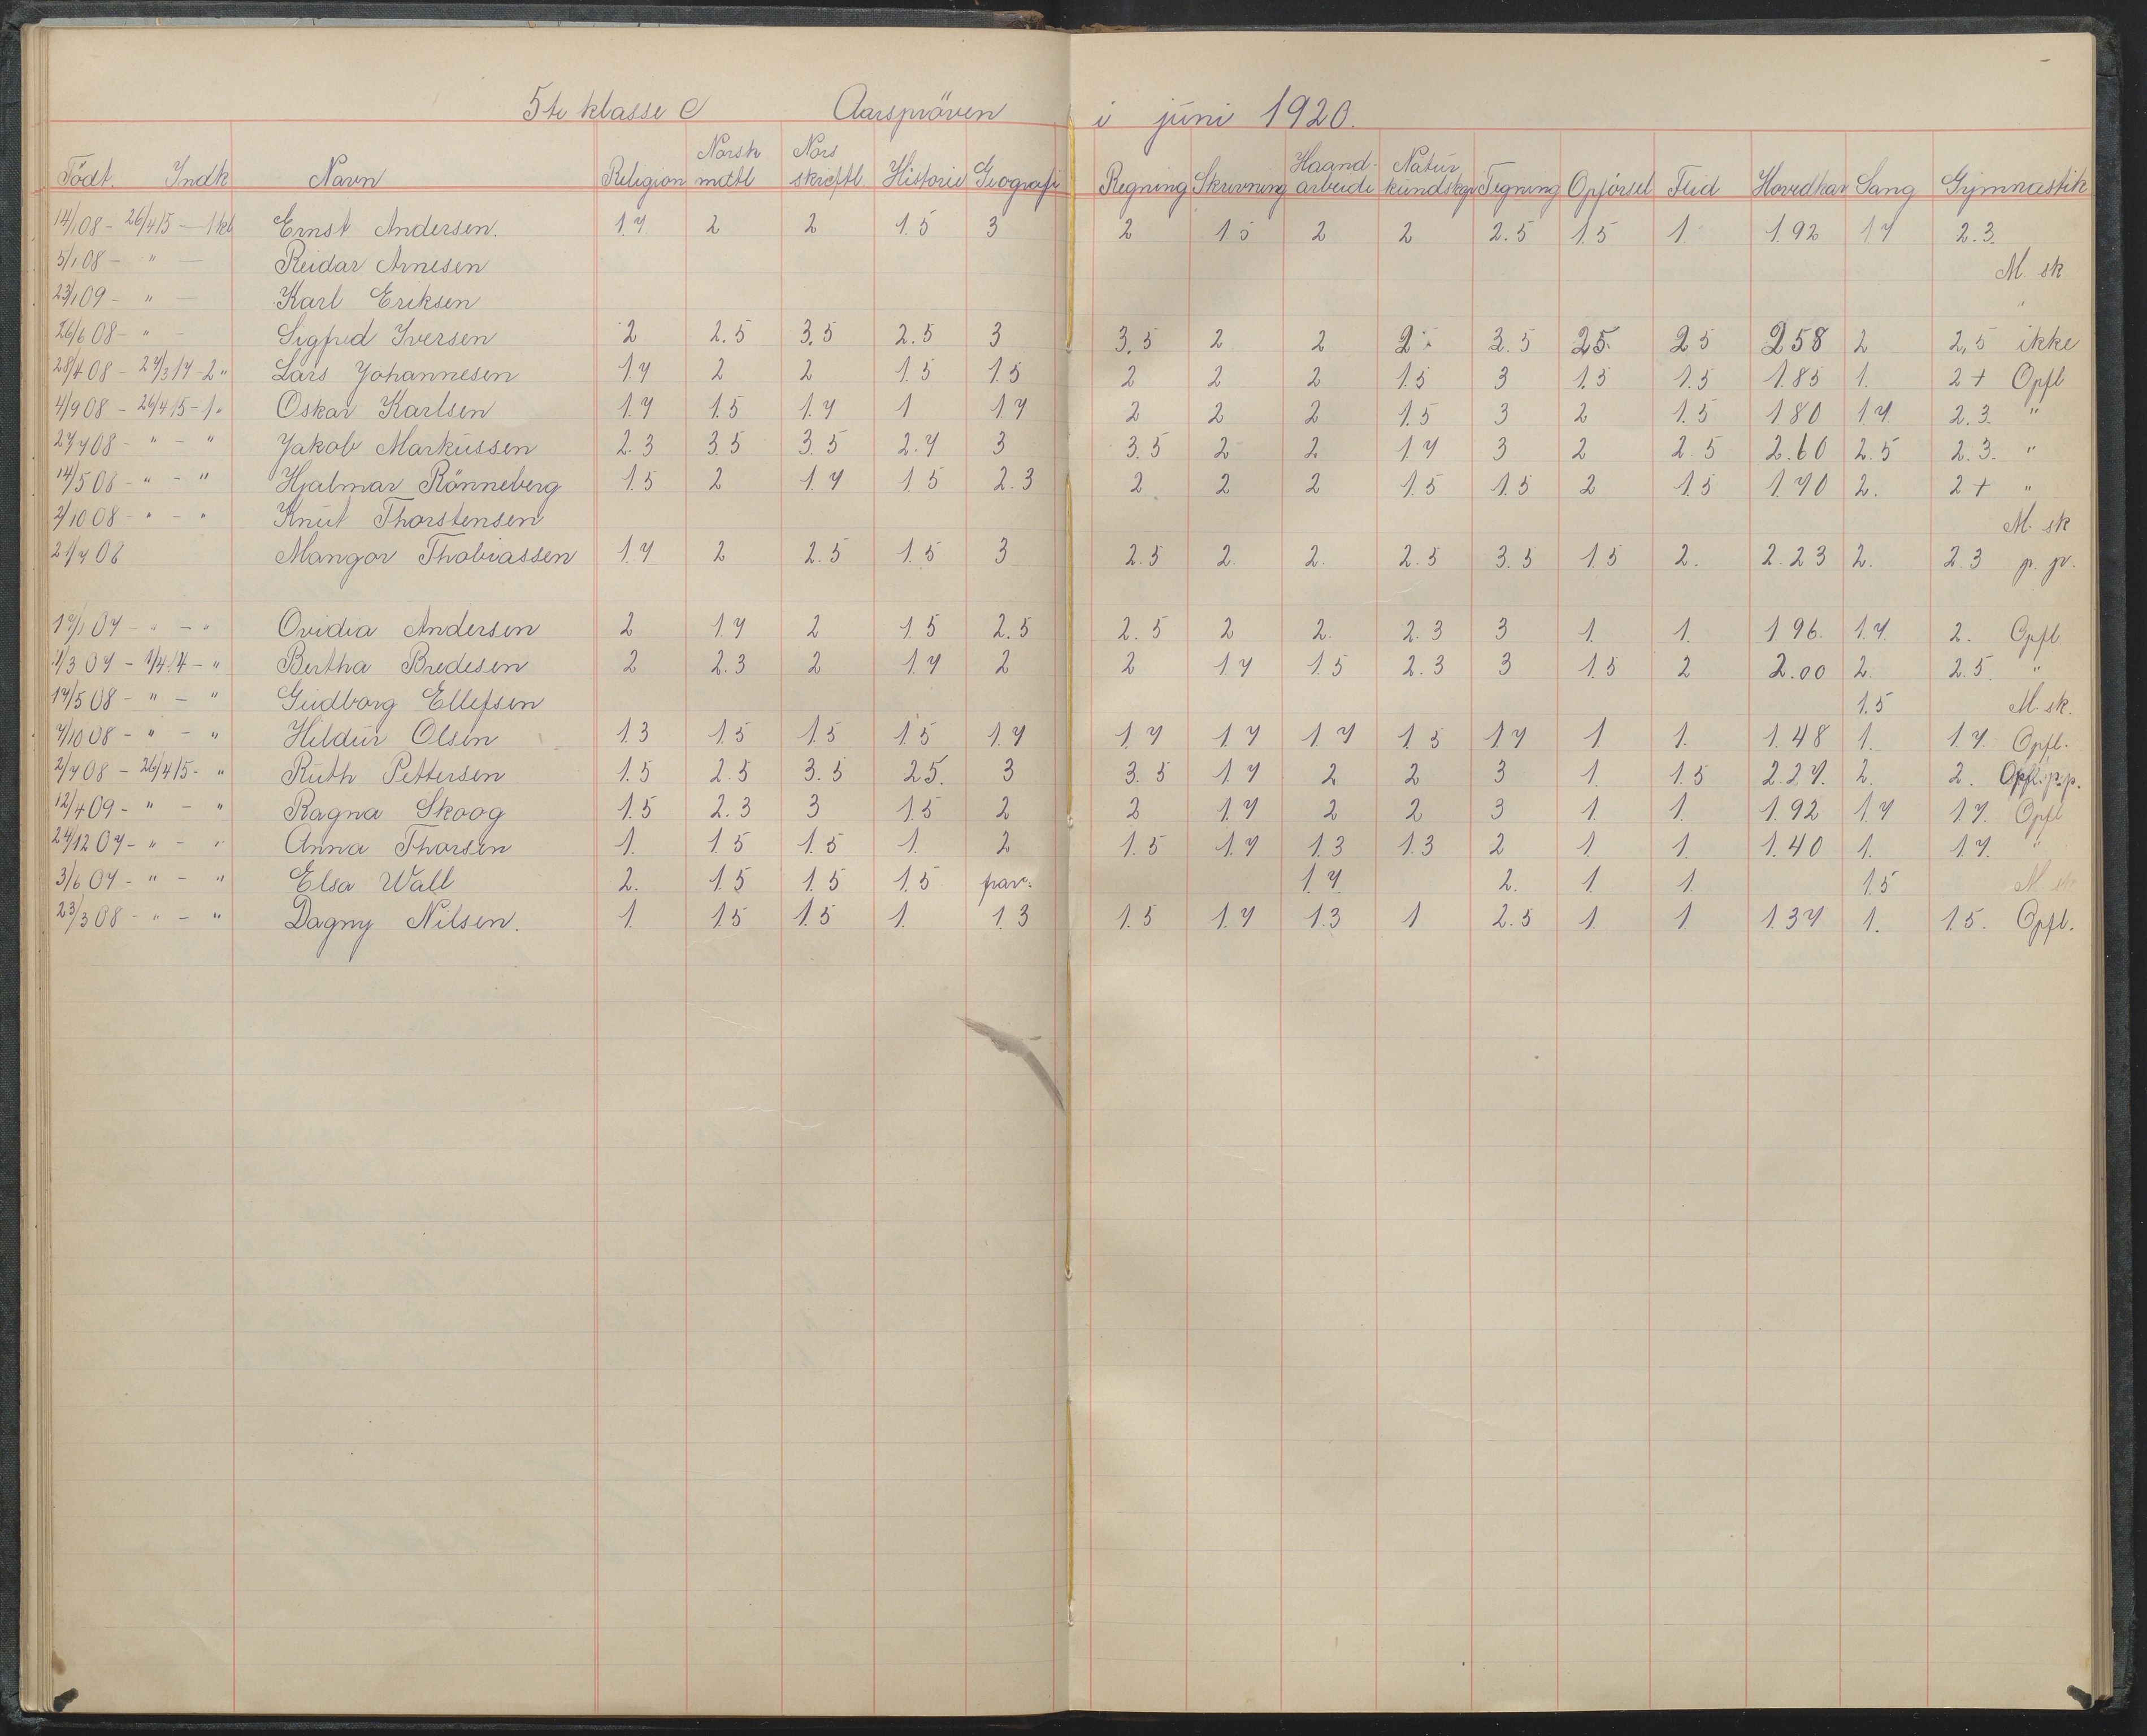 5te klasse C Aarspröven i juni 1920.
Födt. Indk Navn Religion Norsk mdtl Nors skriftl. Historie Geografi Regning Skrivning Haand-arbeide Natur kundskap Tegning Opförsel Flid Hovedkar Sang Gymnastik
14/1 08 - 26/4 15 - 1 kl Ernst Andersen. 1.7 2 2 1.5 3 2 1.5 2 2 2.5 1.5 1. 1.92 1.7 2.3.
5/1 08 - " - Reidar Arnesen M. sk
23/1 09 - " - Karl Eriksen "
26/6 08 - " - Sigfred Iversen 2 2.5 3.5 2.5 3 3.5 2 2 2 3.5 2.5 2.5 2.58 2 2,5 ikke
28/4 08 - 27/3 17 - 2 " Lars Johannesen 1.7 2 2 1.5 1.5 2 2 2 1.5 3 1.5 1.5 1.85 1. 2+ Opfl
4/9 08 - 26/4 15 - 1 " Oskar Karlsen 1.7 1.5 1.7 1 1.7 2 2 2 1.5 3 2 1.5 1.80 1.7. 2.3. "
27/7 08 - " - " Jakob Markussen 2.3 3.5 3.5 2.7 3 3.5 2 2 1.7 3 2 2.5 2.60 2.5 2.3. "
14/5 08 - " - " Hjalmar Rönneberg 1.5 2 1.7 1.5 2.3 2 2 2 1.5 1.5 2 1.5 1.70 2. 2+ "
2/10 08 - " - " Knut Thorstensen M. sk
21/7 08 Mangor Thobiassen 1.7 2 2.5 1.5 3 2.5 2. 2. 2.5 3.5 1.5 2. 2.23 2. 2.3 p. pr.
17/1 07 - " - " Ovidia Andersen 2 1.7 2 1.5 2.5 2.5 2 2. 2.3 3 1. 1. 1.96. 1.7. 2. Opfl
1/3 07 - 1/4 14 - " Bertha Bredesen 2 2.3 2 1.7 2 2 1.7 1.5 2.3 3 1.5 2 2.00 2. 2.5. "
17/5 08 - " - " Gudborg Ellefsen 1.5 M. sk.
7/10 08 - " - " Hildur Olsen 1.3 1.5 1.5 1.5 1.7 1.7 1.7 1.7 1.5 1.7 1 1. 1.48 1. 1.7. Opfl.
2/7 08 - 26/4 15 - " Ruth Pettersen 1.5 2.5 3.5 2.5. 3 3.5 1.7 2 2 3 1. 1.5 2.27. 2. 2. Opfl. p.p.
12/4 09 - " - " Ragna Skoog 1.5 2.3 3 1.5 2 2 1.7 2 2 3 1. 1. 1.92 1.7 1.7. Opfl
24/12 07 - " - " Anna Thorsen 1. 1.5 1.5 1. 2 1.5 1.7 1.3 1.3 2 1 1. 1.40 1. 1.7. "
3/6 07 - " - " Elsa Wall 2. 1.5 1.5 1.5 1.7. 2. 1. 1. 1.5 M. sk
23/3 08 - " - " Dagny Nilsen. 1. 1.5 1.5 1. 1.3 1.5 1.7 1.3 1 2.5 1 1 1.37 1. 1.5. Opfl.